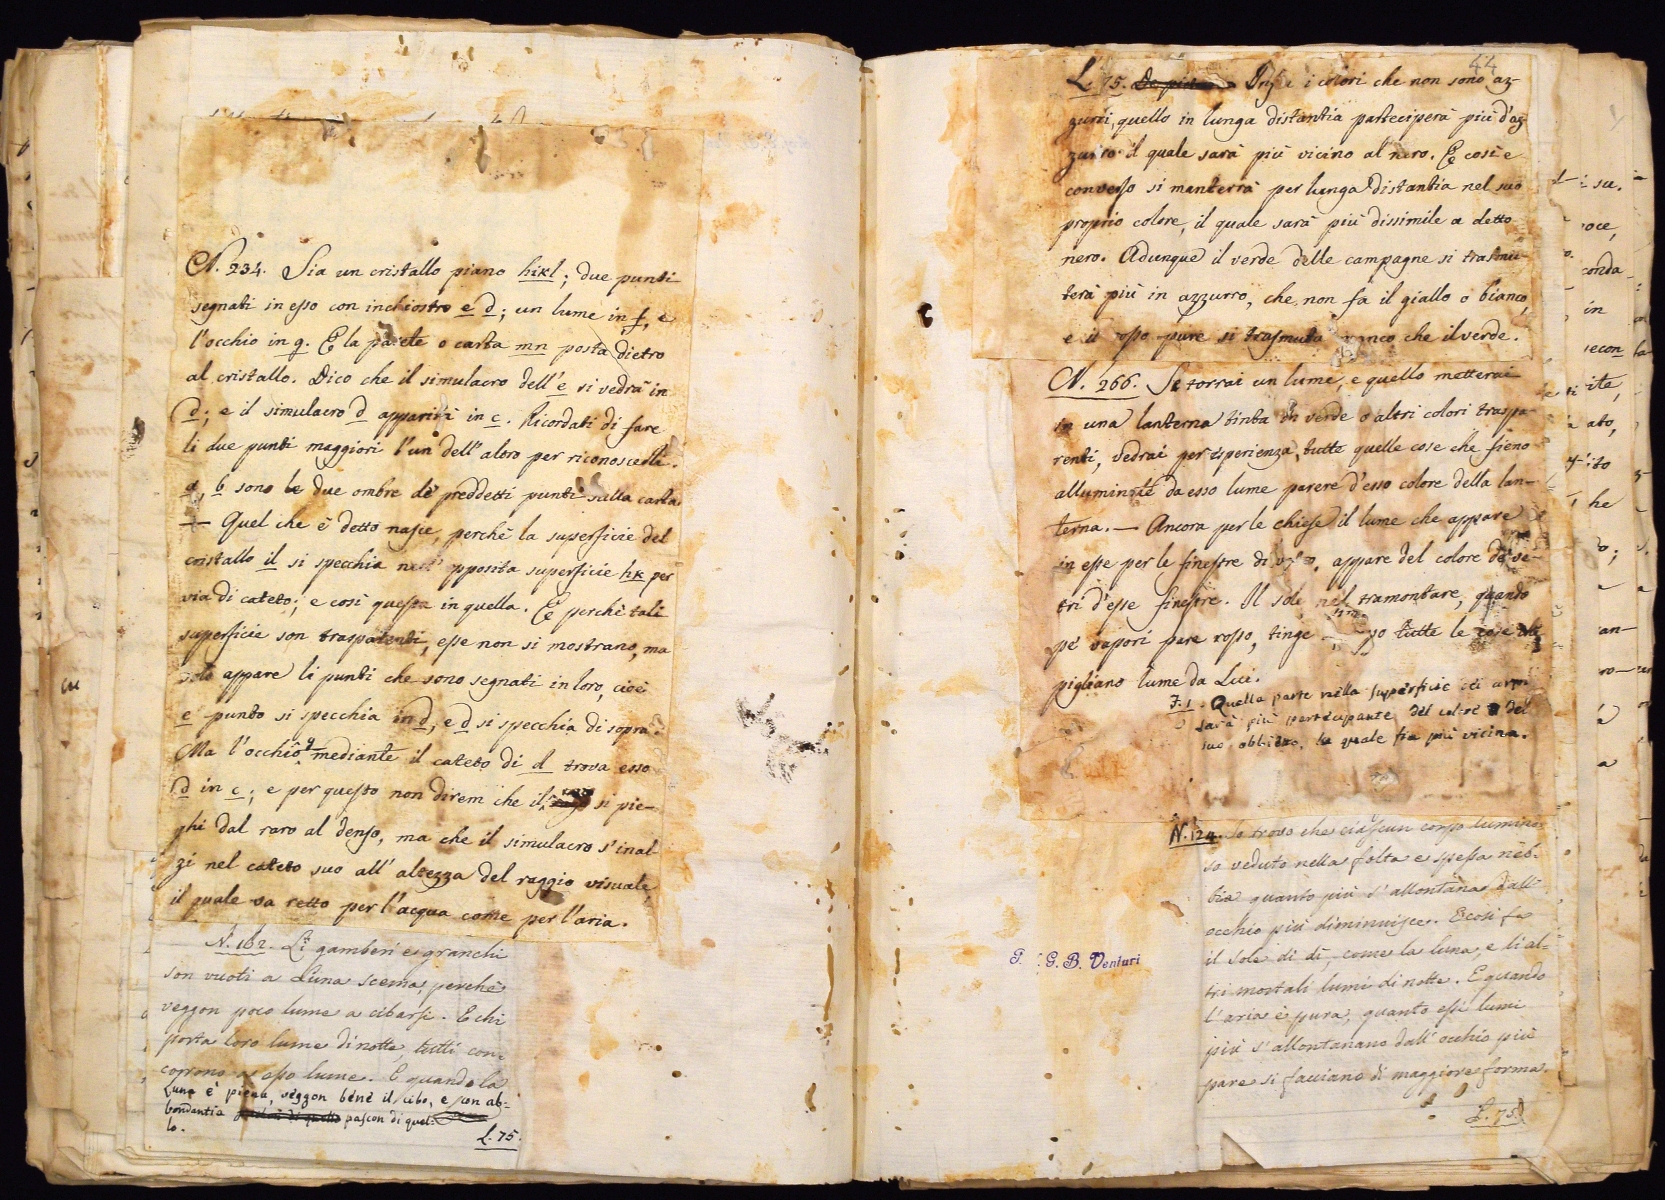 N. 234. Sia un cristallo piano hikl; due punti
segnati in esso con inchiostro e d; un lume in f, e
l'occhio in g. E la parete o carta mn posta dietro
al cristallo. Dico che il simulacro dell'e si vedrà in
d; e il simulacro d apparirà in c. Ricordati di fare
li due punti maggiori l'un dell'altro per riconoscerli.
a, b sono le due ombre de' preddetti punti sulla carta
— Quel che è detto nasce, perchè la superficie del
cristallo il si specchia nell'opposita superficie hk per
via di cateto; e così questa in quella. E perchè tali
superficie son trasparenti, esse non si mostrano, ma
solo appare li punti che sono segnati in loro, cioè
e punto si specchia in d, e d si specchia di sopra.
Ma l'occhio g mediante il cateto di d trova esso
d in c; e per questo non direm che il raggio si pie-
ghi dal raro al denso, ma che il simulacro s'inal
zi nel cateto suo all'altezza del raggio visuale,
il quale va retto per l'acqua come per l'aria.
N. 162. Li gamberi e granchi
son vuoti a Luna scema, perchè
veggon poco lume a cibarsi. E chi
porta loro lume di notte, tutti con-
corrono a esso lume. E quando la
Luna è piena, veggon bene il cibo, e con ab-
bondantia pascon di quel-
lo.
L. 75.
44
L. 75. Infra i colori che non sono az-
zurri, quello in lunga distantia parteciperà più d'az
zurro il quale sarà più vicino al nero. E così e
converso si manterrà per lunga distantia nel suo
proprio colore, il quale sarà più dissimile a detto
nero. Adunque il verde delle campagne si trasmu-
terà più in azzurro, che non fa il giallo o bianco,
e il rosso pure si trasmuta manco che il verde.
N. 266. Se torrai un lume, e quello metterai
in una lanterna tinta in verde o altri colori traspa-
renti, vedrai per esperienza, tutte quelle cose che sieno
alluminate da esso lume parere d'esso colore della lan-
terna. — Ancora per le chiese il lume che appare
in esse per le finestre di vetro, appare del colore de' ve-
tri d'esse finestre. Il sole nel tramontare, quando
pe' vapori pare rosso, tinge in rosso tutte le cose che
pigliano lume da Lui.
F. 1. Quella parte nella superficie dei corpi
sarà più partecipante del colore del
suo obbietto, la quale fia più vicina.
N. 124. Io trovo che ciascun corpo lumino-
so veduto nella folta e spessa neb-
bia quanto più s'allontana dall'
occhio più diminuisce. E così fa
il sole di dì, come la luna, e li al-
tri mortali lumi di notte. E quando
l'aria è pura, quanto essi lumi
più s'allontanano dall'occhio più
pare si facciano di maggiore forma.
L. 75
G. B. Venturi